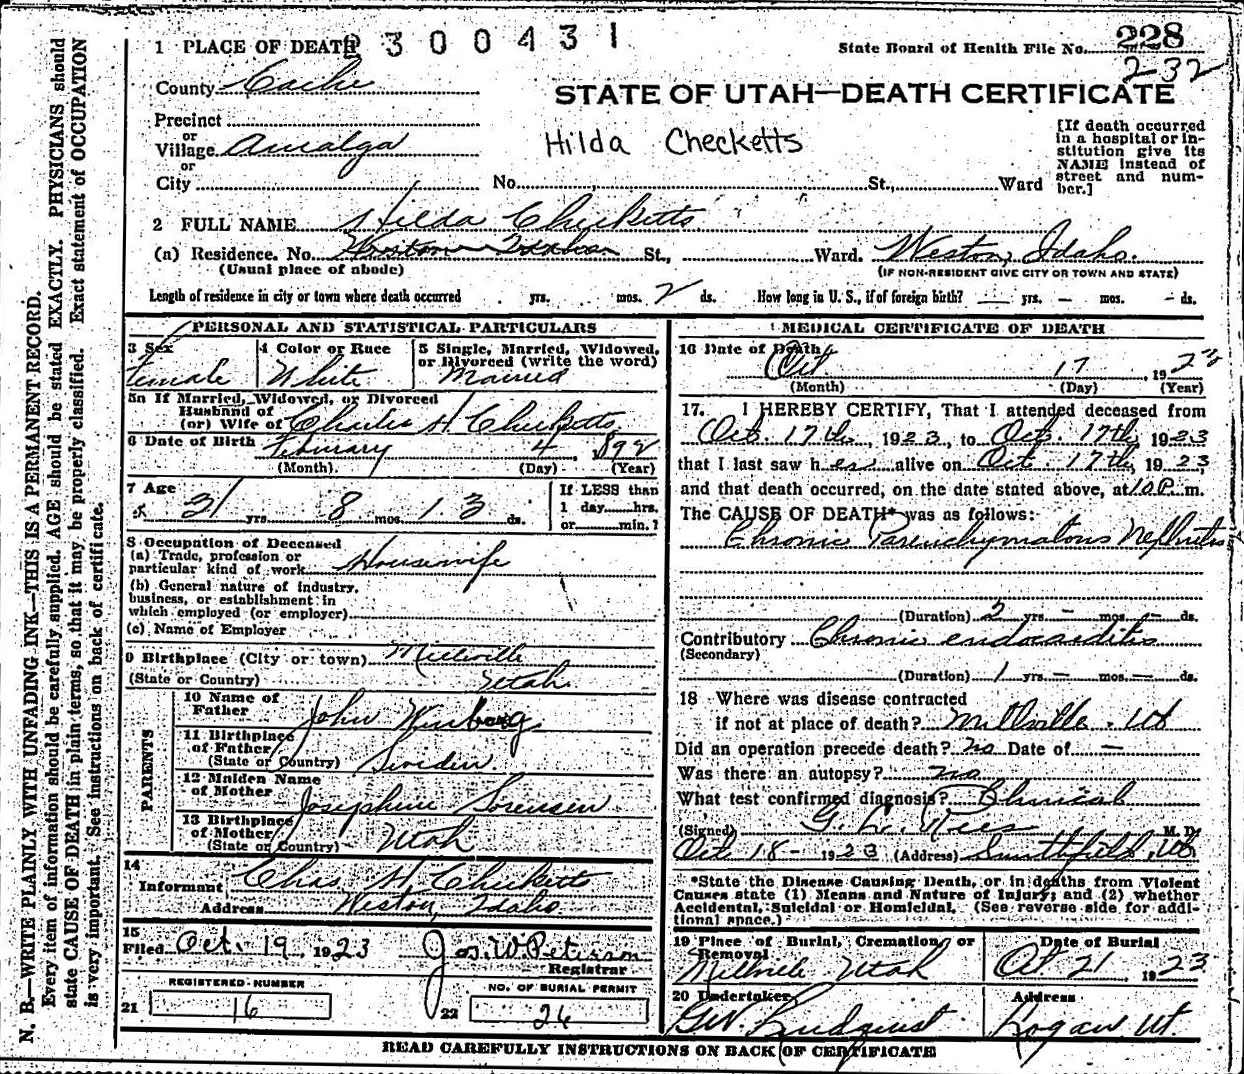 1 PLACE OF DEATH
2300431
State Board of Health File No. 228
232
County Cache
STATE OF UTAH—DEATH CERTIFICATE
Precinct
or
Village Amalga
or
City No. St., Ward
Hilda Checketts
[If death occurred
in a hospital or in-
stitution give its
NAME instead of
street and num-
ber.]
2 FULL NAME Hilda Checketts
(a) Residence. No. Weston Idaho St., Ward. Weston, Idaho.
(Usual place of abode)
(IF NON-RESIDENT GIVE CITY OR TOWN AND STATE)
Length of residence in city or town where death occurred yrs. mos. 2 ds. How long in U. S., if of foreign birth? — yrs. — mos. — ds.
PERSONAL AND STATISTICAL PARTICULARS
3 Sex
Female
4 Color or Race
White
5 Single, Married, Widowed,
or Divorced (write the word)
Married
5a If Married, Widowed, or Divorced
Husband of
(or) Wife of Charles H Checketts
6 Date of Birth February 4 1892
(Month). (Day) (Year)
7 Age
31 yrs. 8 mos. 13 ds.
If LESS than
1 day......hrs.
or......min.?
8 Occupation of Deceased
(a) Trade, profession or
particular kind of work Housewife
(b) General nature of industry,
business, or establishment in
which employed (or employer)
(c) Name of Employer
9 Birthplace (City or town) Millville
(State or Country) Utah
PARENTS
10 Name of
Father John Winberg
11 Birthplace
of Father
(State or Country) Sweden
12 Maiden Name
of Mother Josephine Sorensen
13 Birthplace
of Mother
(State or Country) Utah
14
Informant Chas. H. Checketts
Address Weston, Idaho
15
Filed Oct. 19 1923 Jos. W. Peterson
Registrar
REGISTERED NUMBER
21 16
NO. OF BURIAL PERMIT
22 26
MEDICAL CERTIFICATE OF DEATH
16 Date of Death
Oct 17 1923
(Month) (Day) (Year)
17. I HEREBY CERTIFY, That I attended deceased from
Oct. 17th, 1923, to Oct. 17th, 1923
that I last saw her alive on Oct. 17th, 1923
and that death occurred, on the date stated above, at 10 P. m.
The CAUSE OF DEATH* was as follows:
Chronic Parenchymatous Nephritis
(Duration) 2 yrs — mos. — ds.
Contributory Chronic endocarditis
(Secondary)
(Duration) 1 yrs. — mos. — ds.
18 Where was disease contracted
if not at place of death? Millville, Ut
Did an operation precede death? no Date of —
Was there an autopsy? no
What test confirmed diagnosis? Clinical
(Signed) G. L. Rees M. D.
Oct 18 - 1923 (Address) Smithfield, Ut
*State the Disease Causing Death, or in deaths from Violent
Causes state (1) Means and Nature of Injury; and (2) whether
Accidental, Suicidal or Homicidal. (See reverse side for addi-
tional space.)
19 Place of Burial, Cremation, or
Removal
Millville Utah
Date of Burial
Oct 21 1923
20 Undertaker
G.W. Lindquist
Address
Logan Ut.
READ CAREFULLY INSTRUCTIONS ON BACK OF CERTIFICATE
N. B.—WRITE PLAINLY WITH UNFADING INK—THIS IS A PERMANENT RECORD.
Every item of information should be carefully supplied. AGE should be stated EXACTLY. PHYSICIANS should
state CAUSE OF DEATH in plain terms, so that it may be properly classified. Exact statement of OCCUPATION
is very important. See instructions on back of certificate.